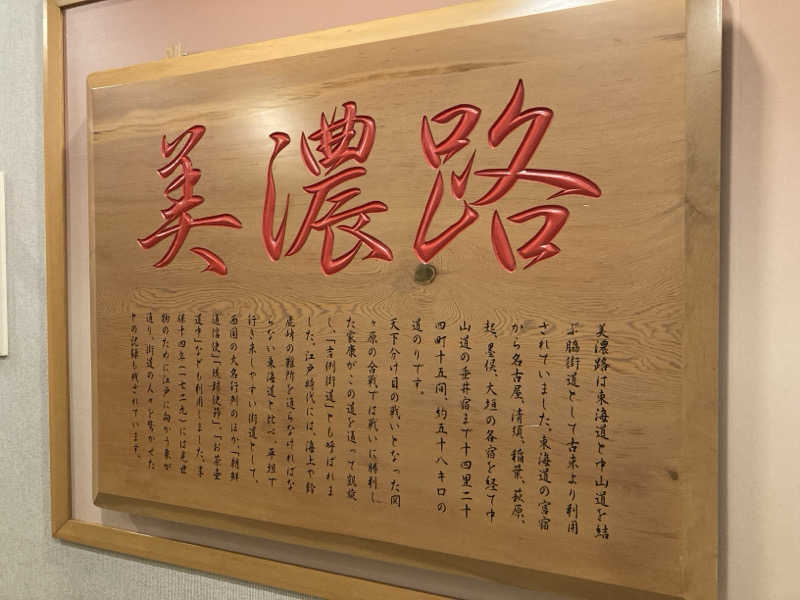 美濃路
美濃路は東海道と中山道を結
ぶ脇街道として古来より利用
されていました。東海道の宮宿
から名古屋、清須、稲葉、萩原、
起、墨俣、大垣の各宿を経て中
山道の垂井宿まで十四里二十
四町十五間、約五十八キロの
道のりです。
天下分け目の戦いとなった関
ヶ原の合戦では戦いに勝利し
た家康がこの道を通って凱旋
し、「吉例街道」とも呼ばれま
した。江戸時代には、海上や鈴
鹿峠の難所を通らなければな
らない東海道と比べ、平坦で
行き来しやすい街道として、
西国の大名行列のほか、「朝鮮
通信使」「琉球使節」、「お茶壷
道中」なども利用しました。享
保十四年(一七二九)には見世
物のために江戸に向かう象が
通り、街道の人々を驚かせた
との記録も残されています。